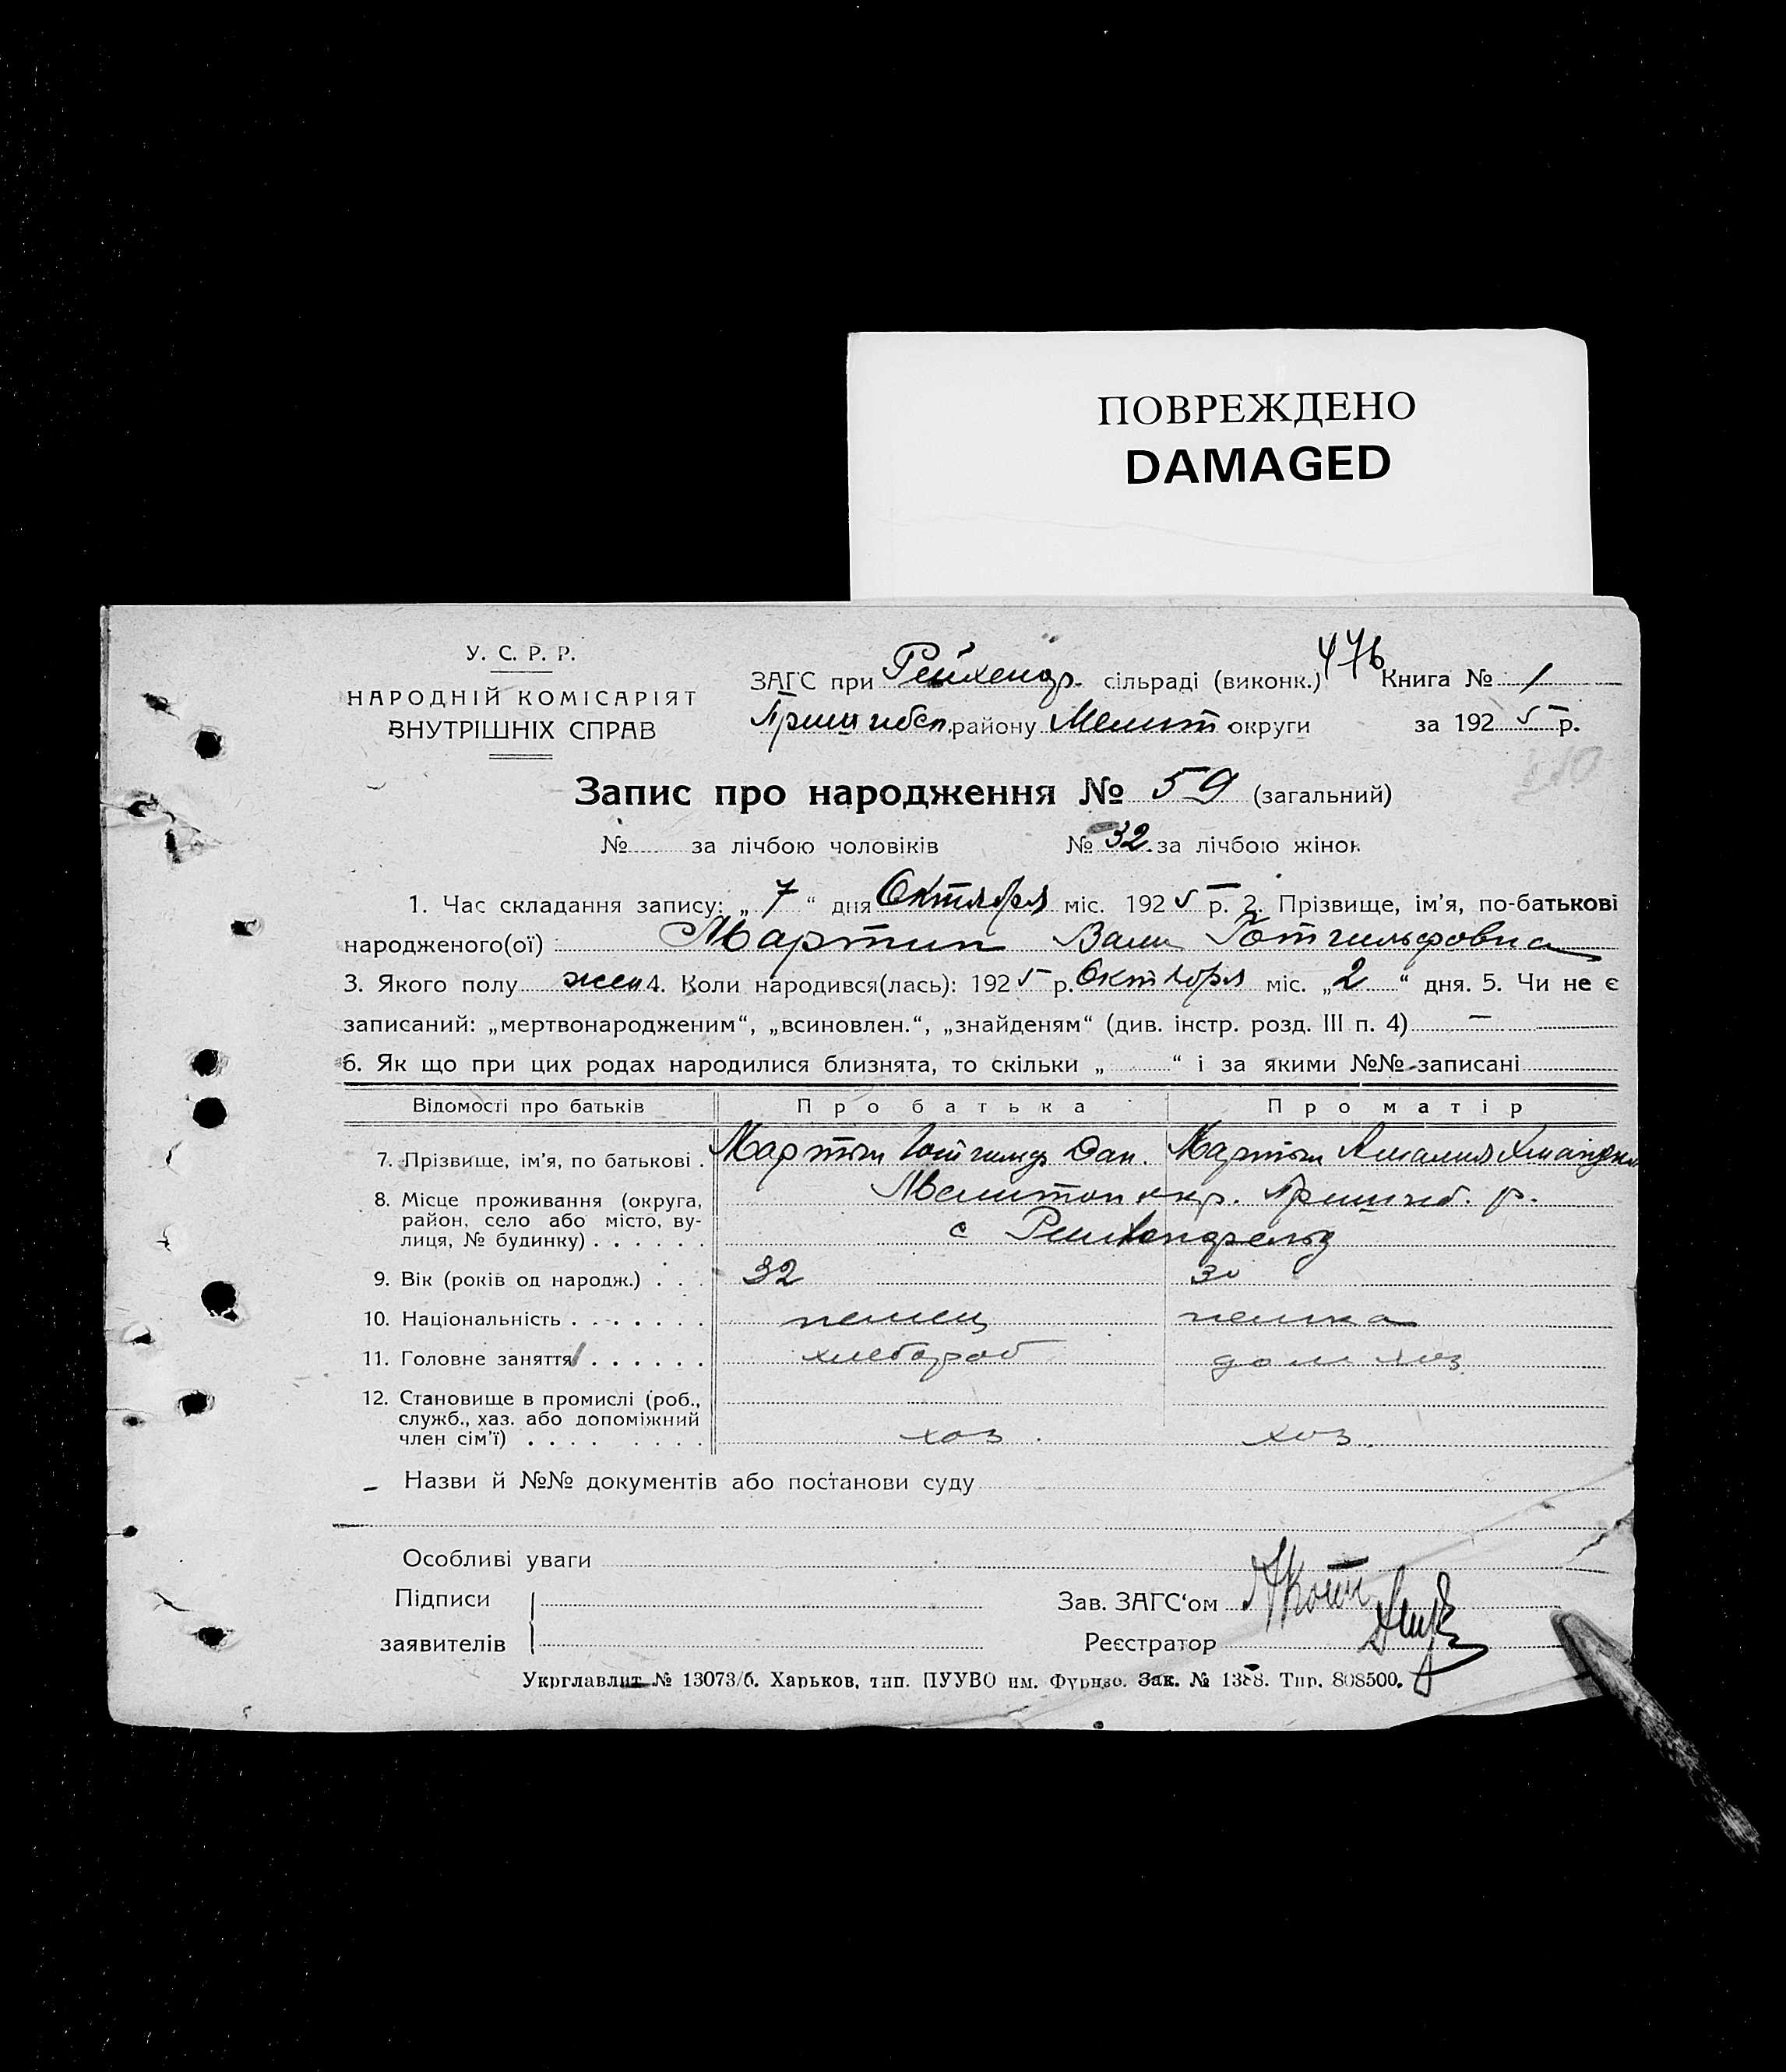 ПОВРЕЖДЕНО
DAMAGED
У. С. Р. Р.
НАРОДНІЙ КОМІСАРІЯТ
ВНУТРІШНІХ СПРАВ
476
ЗАГС при Рейхенф. сільраді (виконк.) Книга № 1
Пришибск. району Мелит округи за 1925 р.
Запис про народження № 59 (загальний)
№ за лічбою чоловіків № 32 за лічбою жінок
1. Час складання запису: „ 7 “ дня Октября міс. 1925 р. 2. Прізвище, ім’я, по-батькові
народженого(ої) Мартин Вали Готгильфовна
3. Якого полу жен 4. Коли народився(лась): 1925 р. Октября міс. „ 2 “ дня. 5. Чи не є
записаний: „мертвонародженим“, „всиновлен.“, „знайденям“ (див. інстр. розд. III п. 4) —
6. Як що при цих родах народилися близнята, то скільки „ “ і за якими №№ записані
Відомості про батьків Про батька Про матір
7. Прізвище, ім’я, по батькові . Мартин Готгильф Дан. Мартин Амалия
8. Місце проживання (округа, Мелитоп окр. Пришиб. р.
район, село або місто, ву-
лиця, № будинку) . . . . . . с Рейхенфельд
9. Вік (років од народж.) . . . 32 30
10. Національність . . . . . . . немец немка
11. Головне заняття . . . . . . хлебороб дом хоз
12. Становище в промислі (роб.,
служб., хаз. або допоміжний
член сім’ї) . . . . . . . . хоз . хоз .
Назви й №№ документів або постанови суду
Особливі уваги
Підписи
Зав. ЗАГС‘ом
заявителів
Реєстратор
Укрглавлит № 13073/б. Харьков, тип. ПУУВО им. Фрунзе. Зак. № 1388. Тир. 808500.